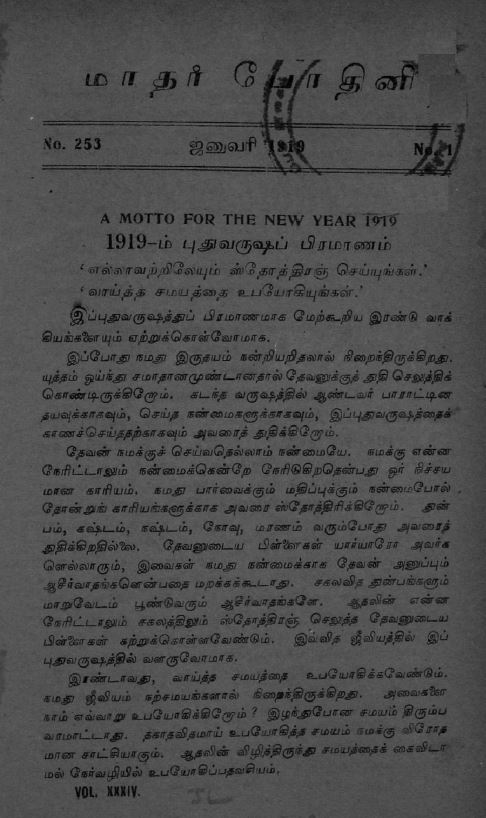 மாதர் போதினி
No. 253 ஜனுவரி 1919 No. 1
A MOTTO FOR THE NEW YEAR 1919
1919-ம் புதுவருஷப் பிரமாணம்
‘எல்லாவற்றிலேயும் ஸ்தோத்திரஞ் செய்யுங்கள்.’
‘வாய்த்த சமயத்தை உபயோகியுங்கள்.’
இப்புதுவருஷத்துப் பிரமாணமாக மேற்கூறிய இரண்டு வாக்
கியங்களையும் ஏற்றுக்கொள்வோமாக.
இப்போது நமது இருதயம் நன்றியறிதலால் நிறைந்திருக்கிறது.
யுத்தம் ஓய்ந்து சமாதானமுண்டானதால் தேவனுக்குத் துதி செலுத்திக்
கொண்டிருக்கிறோம். கடந்த வருஷத்தில் ஆண்டவர் பாராட்டின
தயவுக்காகவும், செய்த நன்மைகளுக்காகவும், இப்புதுவருஷத்தைக்
காணச்செய்ததற்காகவும் அவரைத் துதிக்கிறோம்.
தேவன் நமக்குச் செய்வதெல்லாம் நன்மையே. நமக்கு என்ன
நேரிட்டாலும் நன்மைக்கென்றே நேரிடுகிறதென்பது ஓர் நிச்சய
மான காரியம். நமது பார்வைக்கும் மதிப்புக்கும் நன்மைபோல்
தோன்றுங் காரியங்களுக்காக அவரை ஸ்தோத்திரிக்கிறோம். துன்
பம், கஷ்டம், நஷ்டம், நோவு, மரணம் வரும்போது அவரைத்
துதிக்கிறதில்லை. தேவனுடைய பிள்ளைகள் யார்யாரோ அவர்க
ளெல்லாரும், இவைகள் நமது நன்மைக்காக தேவன் அனுப்பும்
ஆசீர்வாதங்களென்பதை மறக்கக்கூடாது. சகலவித துன்பங்களும்
மாறுவேடம் பூண்டுவரும் ஆசீர்வாதங்களே. ஆதலின் என்ன
நேரிட்டாலும் சகலத்திலும் ஸ்தோத்திரஞ் செலுத்த தேவனுடைய
பிள்ளைகள் கற்றுக்கொள்ளவேண்டும். இவ்வித ஜீவியத்தில் இப்
புதுவருஷத்தில் வளருவோமாக.
இரண்டாவது, வாய்த்த சமயத்தை உபயோகிக்கவேண்டும்.
நமது ஜீவியம் நற்சமயங்களால் நிறைந்திருக்கிறது. அவைகளை
நாம் எவ்வாறு உபயோகிக்கிறோம்? இழந்துபோன சமயம் திரும்ப
வரமாட்டாது. தகாதவிதமாய் உபயோகித்த சமயம் நமக்கு விரோத
மான சாட்சியாகும். ஆதலின் விழித்திருந்து சமயத்தைக் கைவிடா
மல் நேர்வழியில் உபயோகிப்பதவசியம்.
VOL. XXXIV.